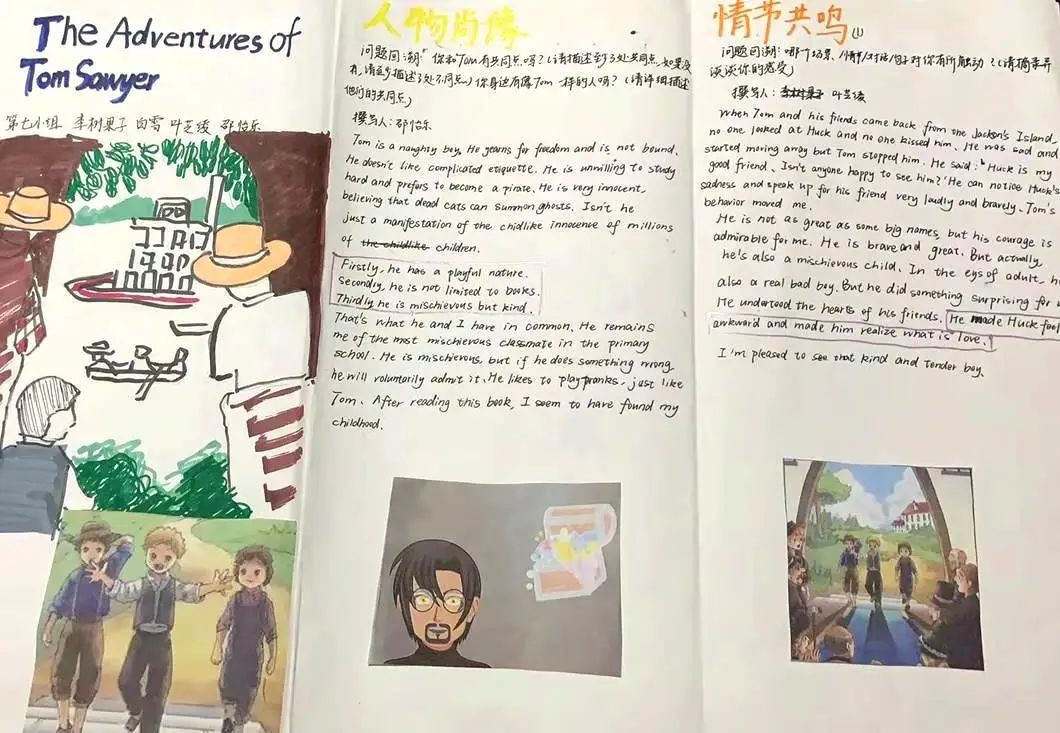 The Adventures of
Tom Sawyer
第七小组 李树果子 白雪 叶芝绫 邵怡乐
人物肖像
问题回溯：你和Tom有共同点吗？（请描述到3处共同点，如果没
有，请到描述3处不同点）你身边有像Tom一样的人吗？（请详细描述
他们的共同点）
撰写人：邵怡乐
Tom is a naughty boy. He yearns for freedom and is not bound.
He doesn't like complicated etiquette. He is unwilling to study
hard and prefers to become a pirate. He is very innocent,
believing that dead cats can summon ghosts. Isn't he
just a manifestation of the chidlike innocence of millions
of the childlike children.
Firstly, he has a playful nature.
Secondly, he is not limited to books.
Thirdly, he is mischievous but kind.
That's what he and I have in common. He remains
me of the most mischievous classmate in the primary
school. He is mischievous, but if he does something wrong
he will voluntarily admit it. He likes to play pranks, just like
Tom. After reading this book, I seem to have found my
childhood.
情节共鸣(1)
问题回溯：哪个场景/情节/对话/句子对你有所触动？（请摘录并
谈谈你的感受）
撰写人：李树果子 叶芝绫
When Tom and his friends came back from the Jackson's Island,
no one looked at Huck and no one kissed him. He was sad and
started moving array but Tom stopped him. He said: "Huck is my
good friend. Isn't anyone happy to see him?' He can notice Huck's
sadness and speak up for his friend very loudly and bravely. Tom's
behavior moved me.
He is not as great as some big names, but his courage is
admirable for me. He is brave and great. But actually
he's also a mischievous child. In the eys of adult, he
also a real bad boy. But he did something surprising for
He undertood the hearts of his friends. He made Huck
awkward and made him realize what is love.
I'm pleased to see that kind and tender boy.